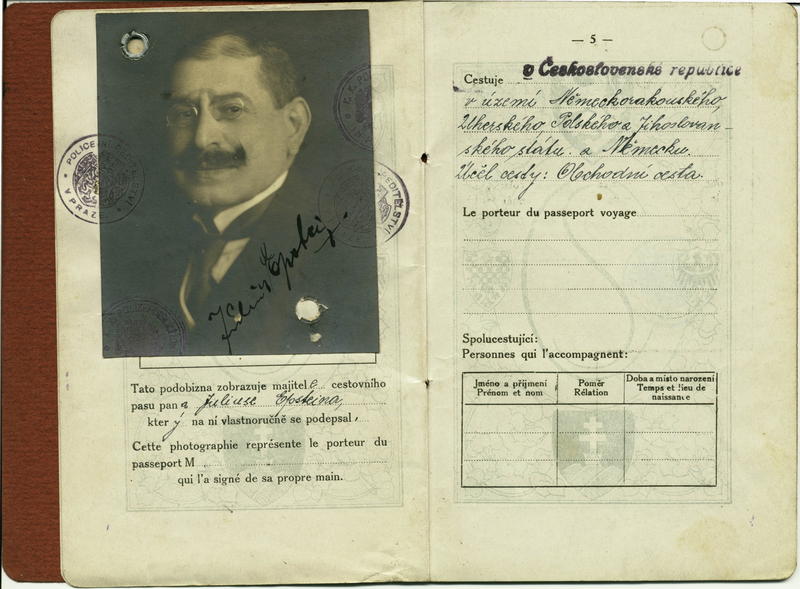 POLICEJNÍ ŘEDITELSTVÍ
V PRAZE
Julius Epstein.
Tato podobizna zobrazuje majitele cestovního
pasu pana Juliuse Epsteina,
který na ní vlastnoručně se podepsal,
Cette photographie représente le porteur du
passeport M
qui l'a signé de sa propre main.
— 5 —
Cestuje v Československé republice
v území Německorakouského,
Uherského, Polského a Jihoslovan-
ského státu a Německu.
Účel cesty: Obchodní cesta.
Le porteur du passeport voyage
Spolucestující:
Personnes qui l'accompagnent:
Jméno a příjmení Poměr Doba a místo narození
Prénom et nom Rélation Temps et lieu de
naissance